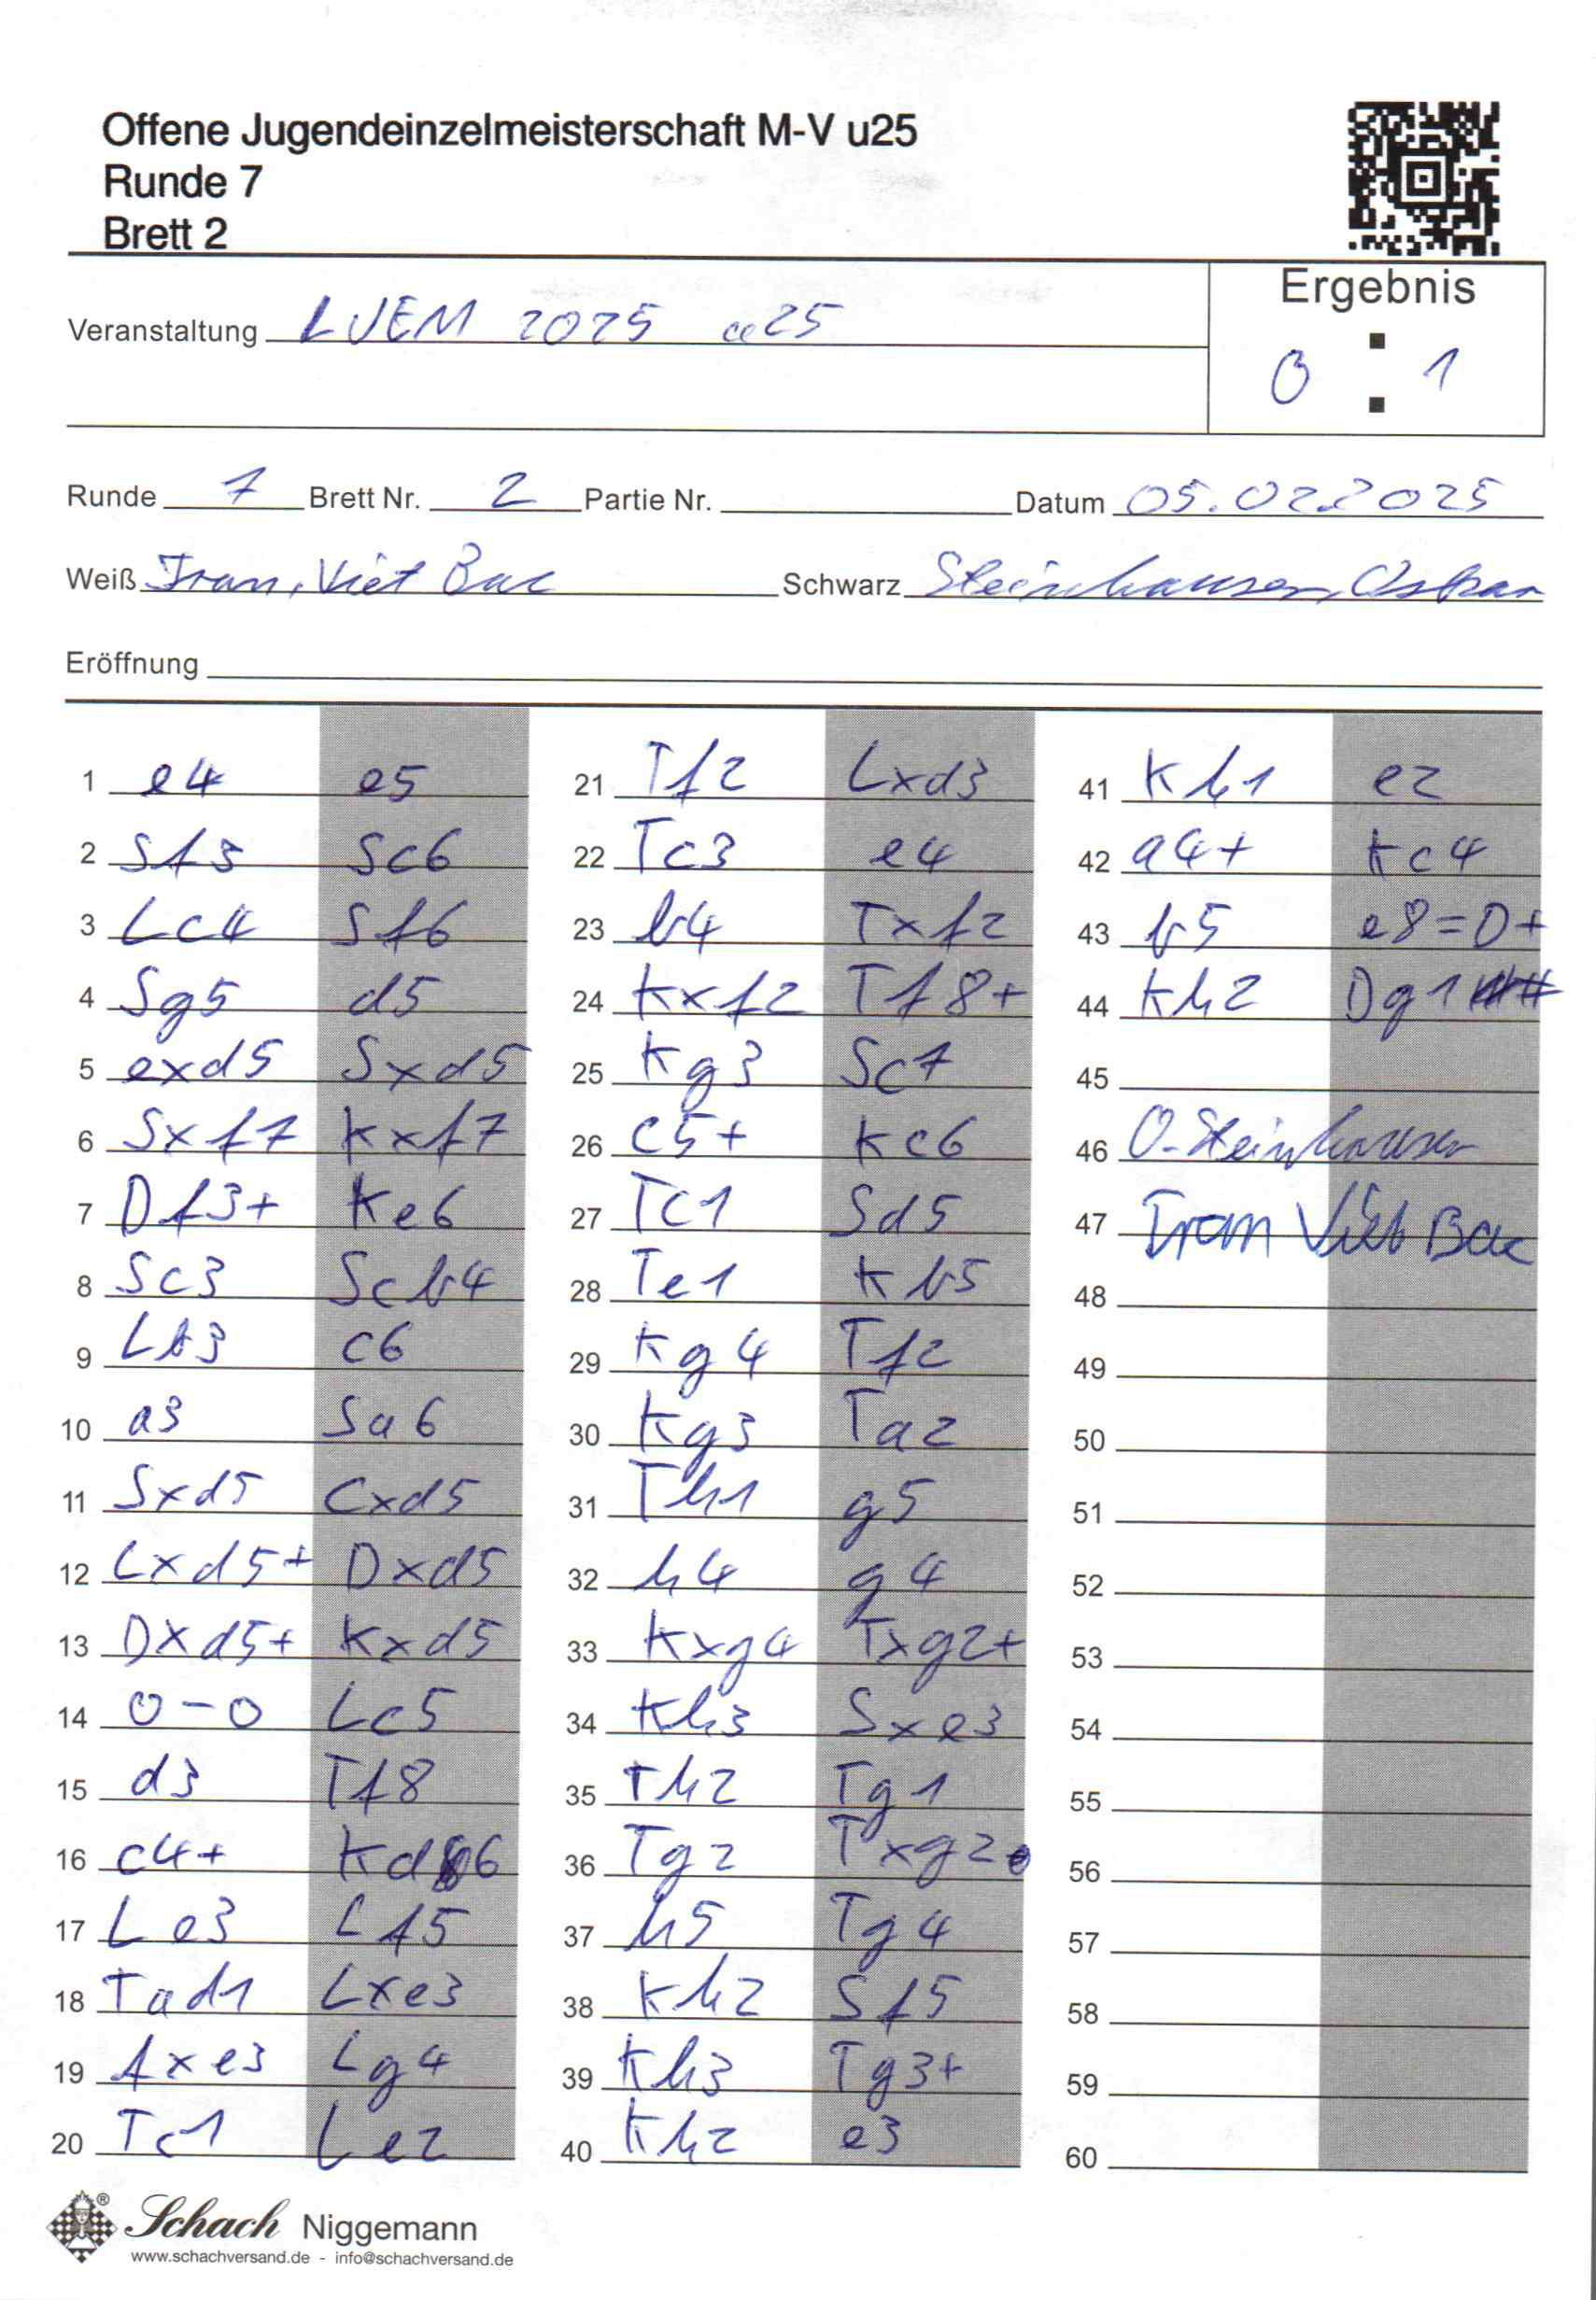 Offene Jugendeinzelmeisterschaft M-V u25
Runde 7
Brett 2
Ergebnis
Veranstaltung LJEM 2025 u25
0 : 1
Runde 7 Brett Nr. 2 Partie Nr. Datum 05.02.2025
Weiß Tran, Viet Bac Schwarz Steinhausen, Oskar
Eröffnung
1 e4 e5
2 Sf3 Sc6
3 Lc4 Sf6
4 Sg5 d5
5 exd5 Sxd5
6 Sxf7 Kxf7
7 Df3+ Ke6
8 Sc3 Scb4
9 Lb3 c6
10 a3 Sa6
11 Sxd5 Cxd5
12 Lxd5+ Dxd5
13 Dxd5+ Kxd5
14 0-0 Lc5
15 d3 Tf8
16 c4+ Kd6
17 Le3 Lf5
18 Tad1 Lxe3
19 fxe3 Lg4
20 Tc1 Le2
21 Tf2 Lxd3
22 Tc3 e4
23 b4 Txf2
24 Kxf2 Tf8+
25 Kg3 Sc7
26 c5+ Kc6
27 Tc1 Sd5
28 Te1 Kb5
29 Kg4 Tf2
30 Kg3 Ta2
31 Th1 g5
32 h4 g4
33 Kxg4 Txg2+
34 Kh3 Sxe3
35 Th2 Tg1
36 Tg2 Txg2
37 h5 Tg4
38 Kh2 Sf5
39 Kh3 Tg3+
40 Kh2 e3
41 Kh1 e2
42 a4+ Kc4
43 b5 e8=D+
44 Kh2 Dg1#
45
46 O. Steinhausen
47 Tran Viet Bac
48
49
50
51
52
53
54
55
56
57
58
59
60
Schach Niggemann
www.schachversand.de - info@schachversand.de